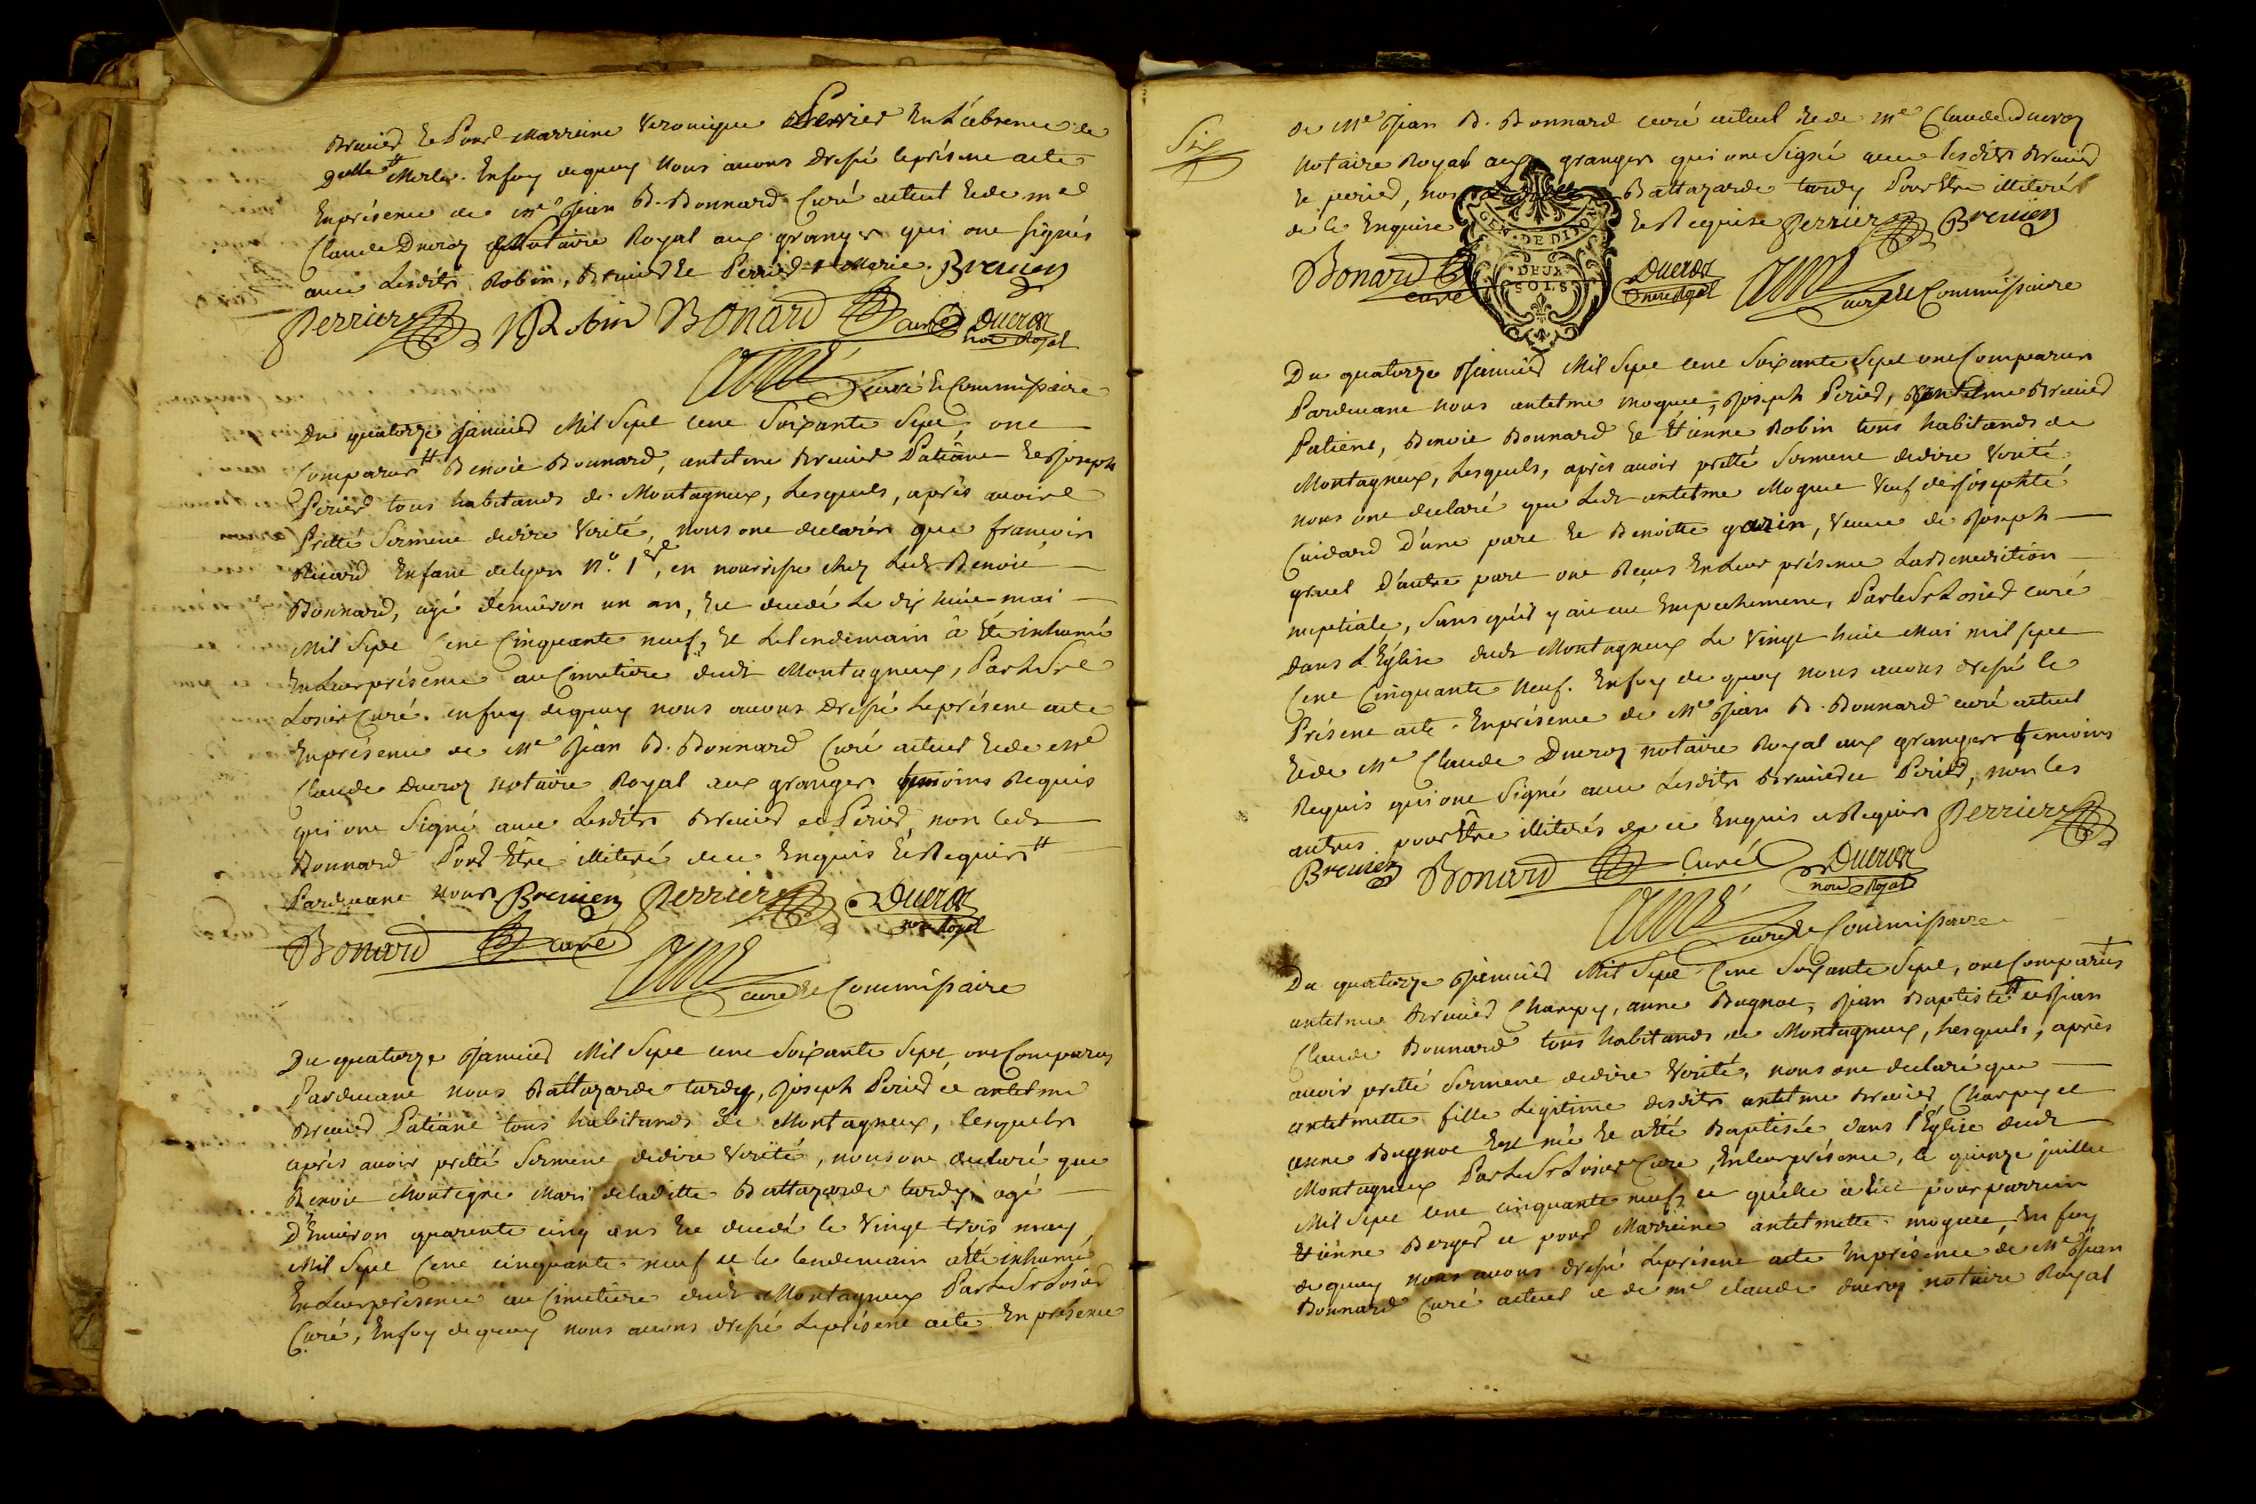 Brevied Et Pour Marreine Veronique Perrier En L'absence de
delle Merle. En foy de quoy Nous avons Dressé le présent acte
En présence de me Jean B. Bonnard Curé actuel Et de me
Claude Ducroz Notaire Royal aux granges qui ont signés
avec Lesdits Robin, Brevied Et Perried Marie. Breuiez
Perrier Robin Bonard curé Ducroz
not Royal
curé Et Commissaire
Du quatorze Janvied Mil Sept Cent Soixante Sept, ont
Comparus Benoit Bonnard, antelme Brevied Patiane Et Joseph
Péried tous habitands de Montagneux, Lesquels, après avoir
Pretté Serment de dire Verité, nous ont declarés que francois
Ricard Enfant de lyon N.º 1er, en nourrisse chez Ledt Benoit
Bonnard, agé d'environ un an, Est decedé Le dix huit mai
Mil Sept Cent Cinquante neuf, Et Le lendemain â Eté inhumé
En Leur présence au Cimetiere dudt Montagneux, Par Le Sr
Losier Curé. en foy de quoy nous avons Dressé Le présent acte
En présence de Me Jean B. Bonnard Curé actuel Et de Me
Claude Ducroz notaire Royal aux granges temoins Requis
qui ont Signé avec Lesdits Brevied et Péried, non ledt
Bonnard Pour Etre illiteré de ce Enquis Et Requis
Pardevant Nous Breuiez Perrier Ducroz
not Royal
Bonard curé
curé Et Commissaire
Du quatorze Janvied Mil Sept Cent Soixante Sept, ont Comparus
Pardevant nous Battazarde tardy, Joseph Péried et antelme
Brevied Patiane tous habitands de Montagneux, lesquels
après avoir pretté Serment de dire Verité, nous ont declaré que
Benoit Montegre Mari de ladette Battazarde tardy, agé
D'Environ quarente cinq ans Est decedé le Vingt trois may
Mil Sept Cent cinquante neuf et le lendemain a été inhumé
En Leur présence au Cimetiere dudt Montagneux Par Le Sr Losier
Curé, En foy de quoy nous avons dressé Le présent acte En présence
Six
de Me Jean B. Bonnard curé actuel Et de Me Claude Ducroz
notaire Royal aux granges qui ont Signé avec lesdits Brevied
Et peried, non Battazarde tardy Pour Etre illiteré
de ce Enquise Et Requise Perrier Breuiez
GEN. DE DIJON
DEUX SOLS
Bonard curé
Ducroz
not Royal
curé Et Commissaire
Du quatorze Janvied Mil Sept Cent Soixante Sept ont Comparus
Pardevant nous antelme moque, Joseph Péried, antelme Brevied
Patiene, Benoit Bonnard Et Etienne Robin tous habitands de
Montagneux, Lesquels, après avoir pretté Serment de dire Verité
nous ont declaré que Ledt antelme Moque Veuf de Josephté
Cuidard D'une part Et Benoitte garin, Veuve de Joseph
gruel D'autre part ont Reçus En Leur présence La Benediction
nuptiale, Sans qu'il y ait eu Empechement, Par le Sr Losier curé
Dans L'Église dudt Montagneux Le Vingt huit Mai mil sept
Cent Cinquante Neuf. En foy de quoy nous avons dressé le
Présent acte. En présence de Me Jean B. Bonnard curé actuel
Et de Me Claude Ducroz notaire Royal aux granges temoins
Requis qui ont Signé avec Lesdits Brevied et Péried, non les
autres pour Etre illiterés de ce Enquis et Requis Perrier
Breuiez Bonard Curé Ducroz
not Royal
curé Et Commissaire
Du quatorze Janvied Mil Sept Cent Soixante Sept, ont Comparus
antelme Brevied Charpy, anne Bugnot, Jean Baptiste et Jean
Claude Bonnard tous habitands de Montagneux, Lesquels, après
avoir pretté Serment de dire Verité, nous ont declaré que
antelmette fille Legitime desdits antelme Brevied Charpy et
anne Bugnot Est née Et a été Baptisée dans l'Église dudt
Montagneux Par Le Sr Losier Curé, En leur présence, le quinze juillet
Mil Sept Cent cinquante neuf, et qu'elle a Eu pour parrain
Etienne Berger et pour Marreine antelmette moque, En foy
de quoy nous avons dressé Le présent acte En présence de Me Jean
Bonnard Curé actuel et de me claude ducroz notaire Royal